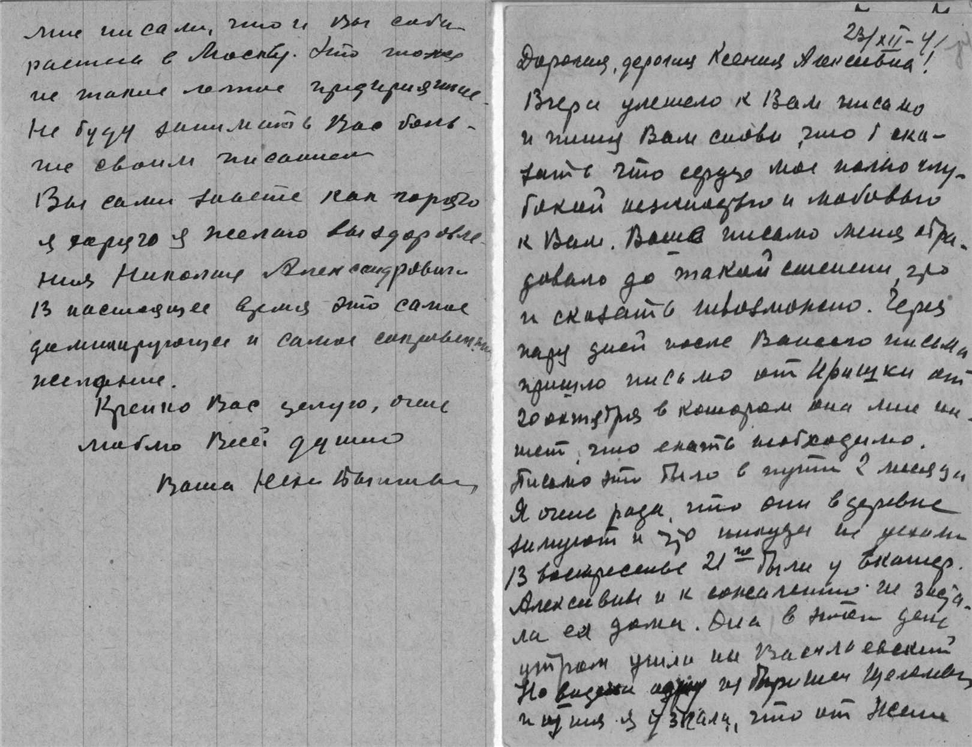 мне писали, что и Вы соби
раетесь в Москву. Это тоже
не такое легкое предприятие.
Не буду занимать Вас боль-
ше своим писанием
Вы сами знаете как горячо
я желаю выздоровле-
ния Николаю Александровичу
В настоящее время это самое
доминирующее и самое сокровенное
желание.
Крепко Вас целую, очень
люблю Всей душой
Ваша
23/XII-41
Дорогая, дорогая Ксения Алексеевна!
Вчера улетело к Вам письмо
и пишу Вам снова, что б ска-
зать что сердце мое полно глу-
бокой нежностью и любовью
к Вам. Ваше письмо меня обра-
довало до такой степени, что
и сказать невозможно. Через
пару дней после Вашего письма
пришло письмо от Иришки от
20 октября в котором она мне пи-
шет, что ехать необходимо.
Письмо это было в пути 2 месяца
Я очень рада, что они в деревне
зимуют и никуда не уехали
В воскресенье 21го были у Екатер.
Алексеевны и к сожалению не заста-
ла её дома. Она в этот день
утром ушла на Васильевский
Но видела одну из барышен
и от нея я узнала, что от Жени